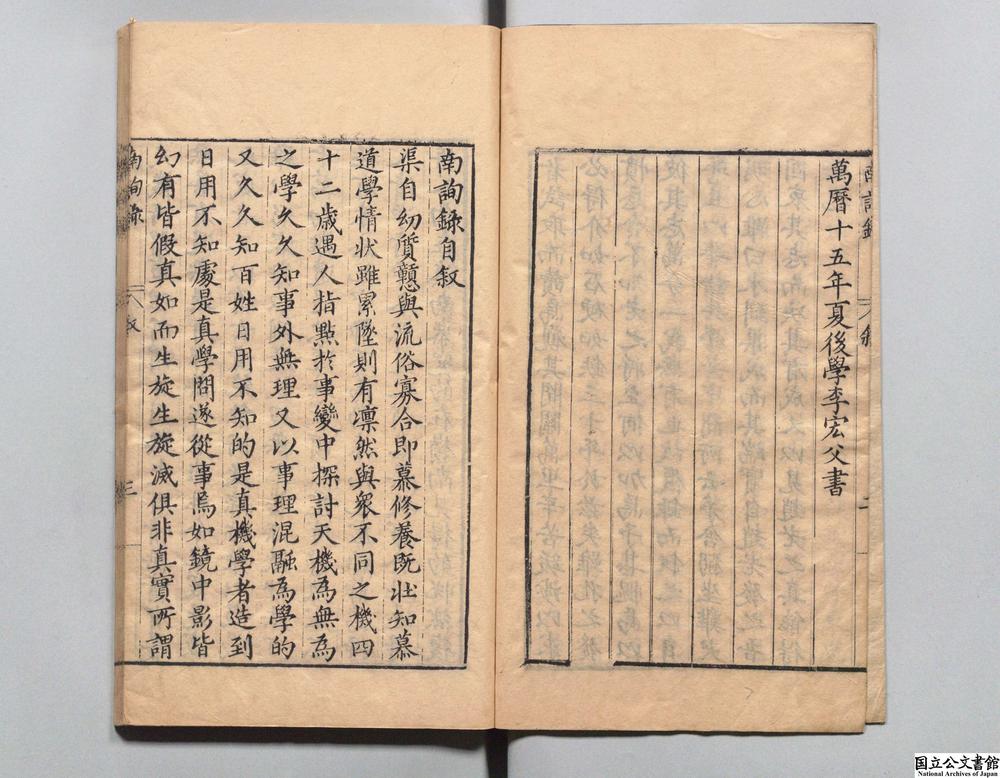 萬曆十五年夏後學李宏父書
南詢錄自敘
渠自幼質戇與流俗寡合即慕修養既壯知慕
道學情狀雖累墜則有凛然與衆不同之機四
十二歲遇人指點於事變中探討天機為無為
之學久久知事外無理又以事理混融為學的
又久久知百姓日用不知的是真機學者造到
日用不知處是真學問遂從事焉如鏡中影皆
幻有皆假真如而生旋生旋滅俱非真實所謂
南詢錄
叙
三
国立公文書館
National Archives of Japan